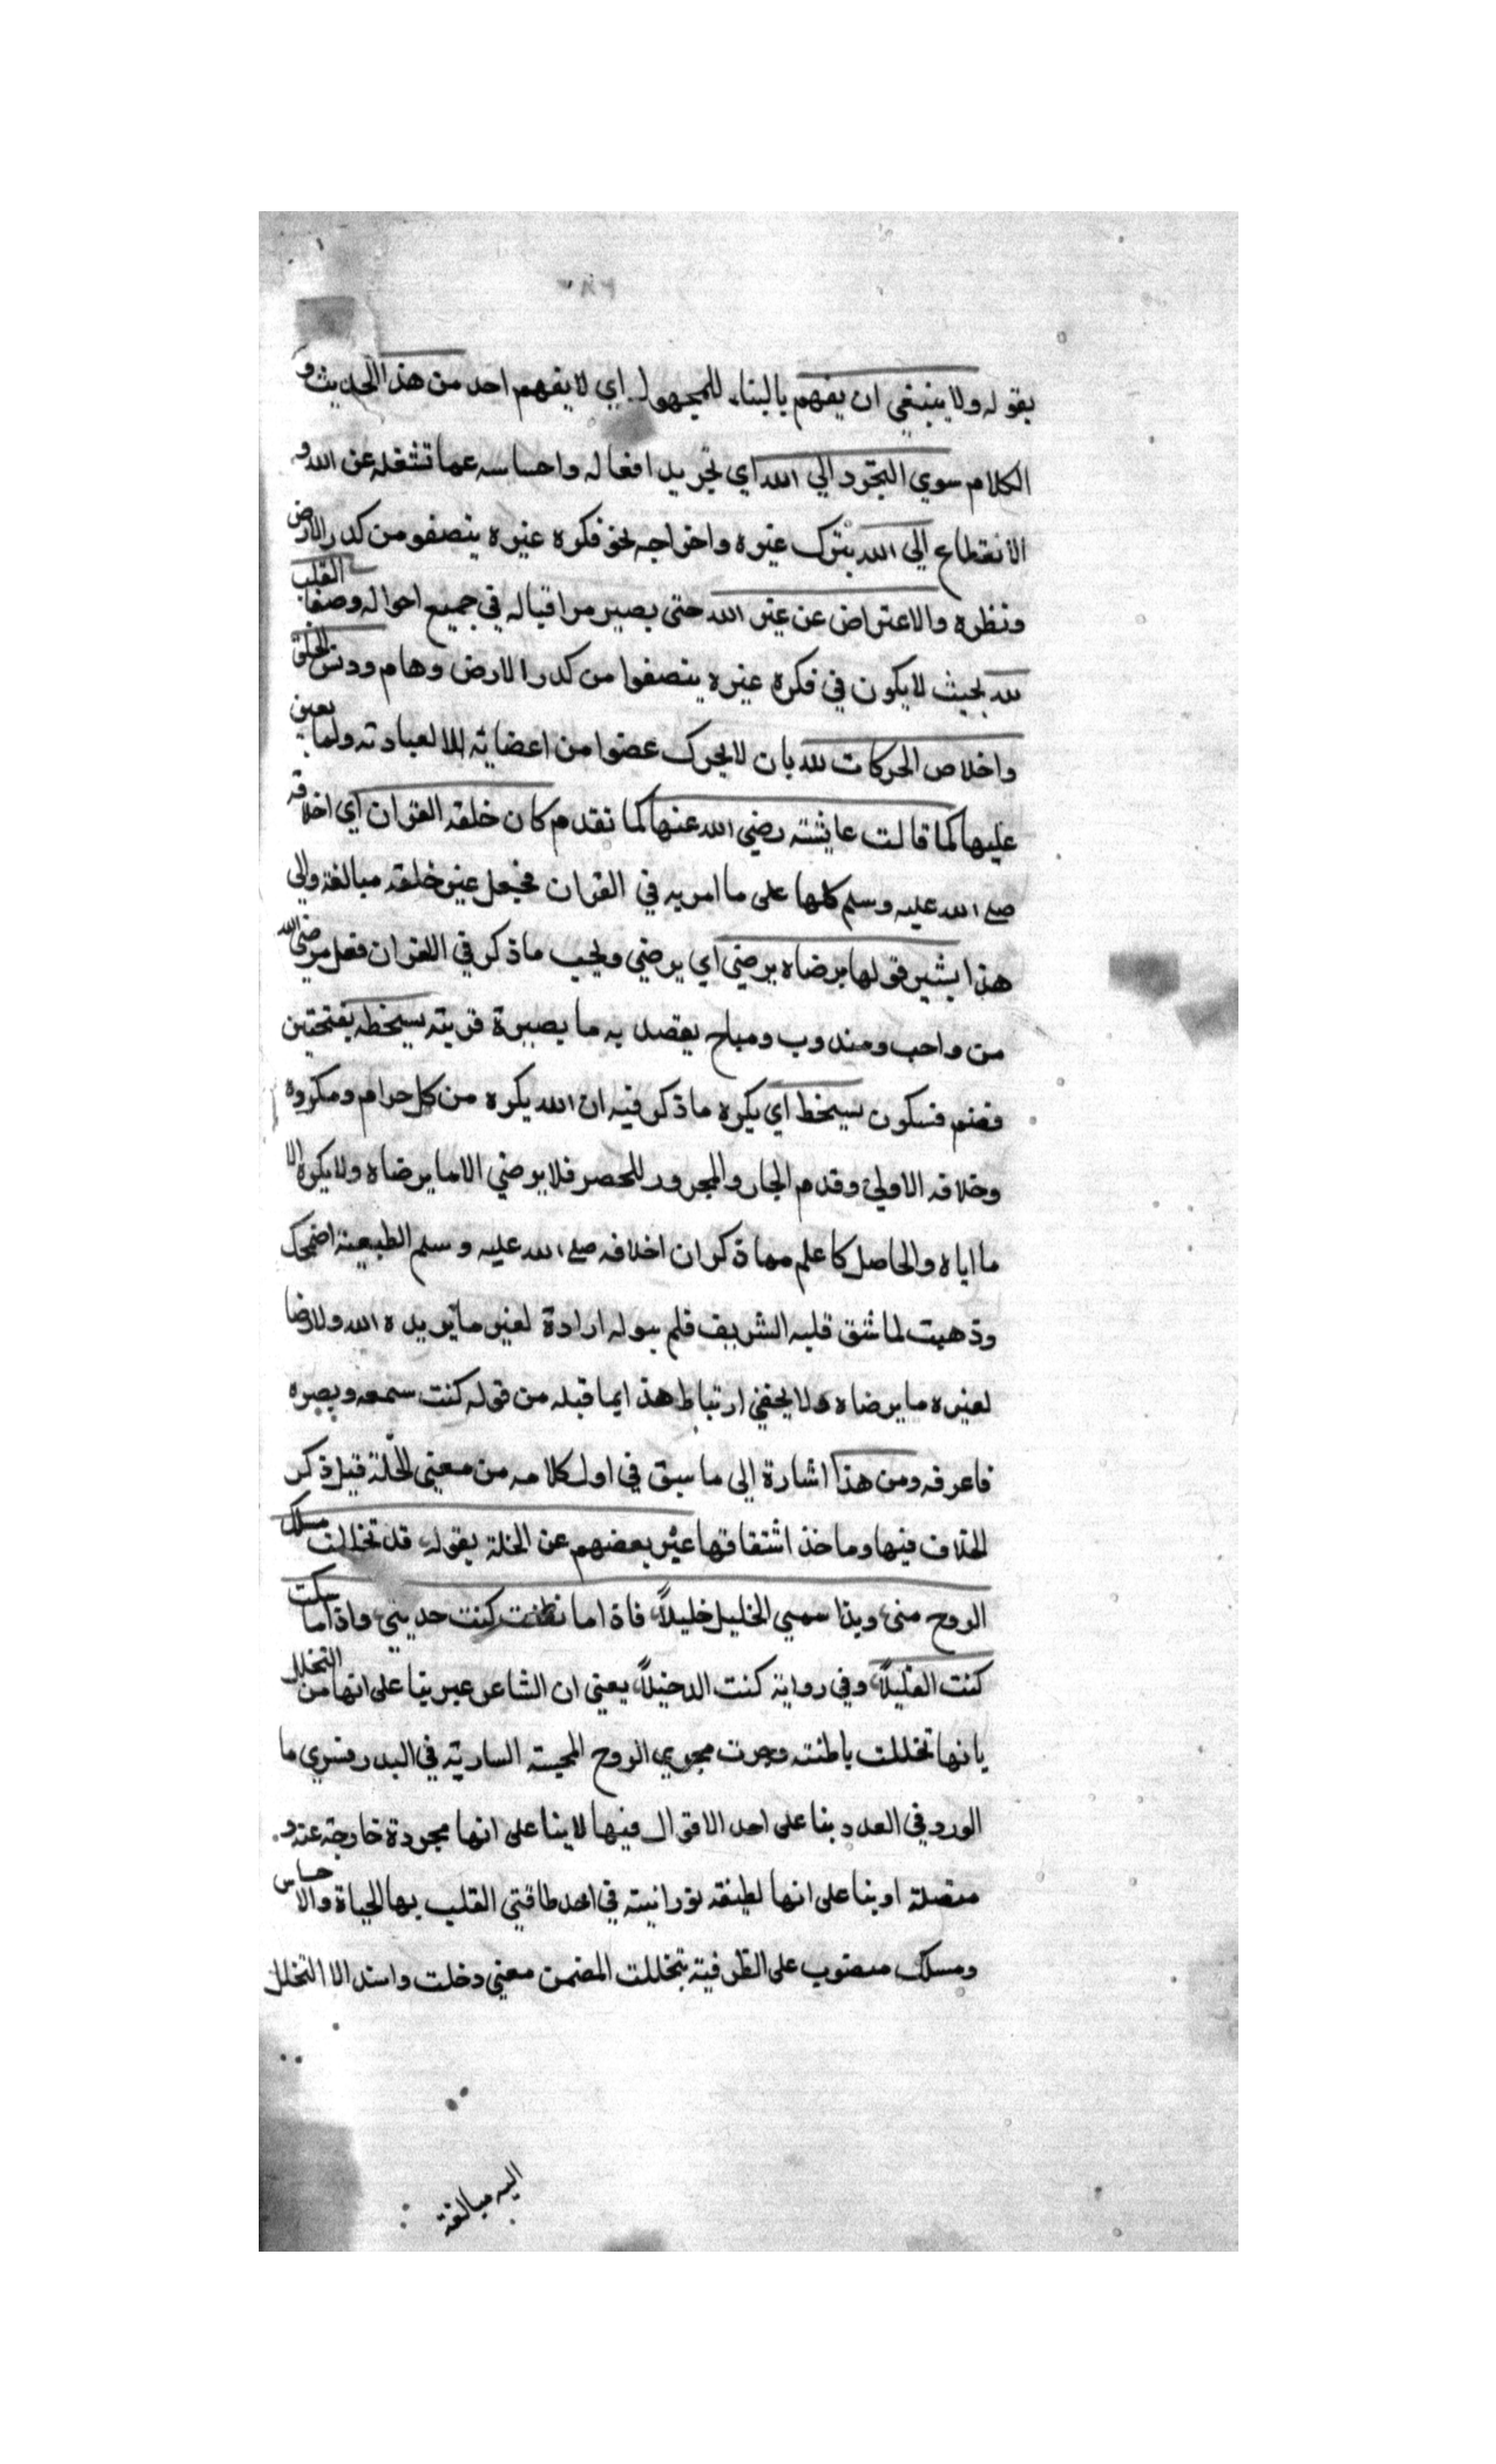 بقوله ولا ينبغي ان يفهم بالبناء للمجهول اي لا يفهم احد من هذا الحديث و
الكلام سوي التجرد الي الله اي تجريد افعاله واحساسه عما تشغله عن الله و
الانقطاع الي الله بترك غيره واخراجه نحو فكره غيره ينصفو من كدر الارض
ونظره والاعتراض عن غير الله حتى يصير مراقباله في جميع احواله وصفا القلب
لله بحيث لا يكون في فكره غيره ينصفوا من كدر الارض وهام ودنس الخلق
واخلاص الحركات لله بان لا يحرك عضوا من اعضائه الا لعبادته ولما يعين
عليها كما قالت عايشته رضي الله عنها كما تقدم كان خلقه القران اي اخلاقه
صلى الله عليه وسلم كلها على ما امر به في القران فجعل عين خلقه مبالغة والى
هذا يشير قولها برضاه يرضى اي يرضي ويحب ماذكر في القران فعل مرضي الله
من واجب ومندوب ومباح يقصد به ما يصيره قربته بسخطه بفتحتين
فضم فسكون يسخط اي يكره ماذكر فيه ان الله يكره من كل حرام ومكروه
وخلافه الاولى وقدم الجار والمجرور للحصر فلا يرضي الا ما يرضاه ولا يكره الا
ما اياه والحاصل كا علم مما ذكر ان اخلاقه صلى الله عليه وسلم الطبيعية اضمحك
وذهبت لما شق قلبه الشريف فلم يبوله ارادة لغير ما يريده الله ولا رضا
لغيره ما يرضاه ولا يخفي ارتباط هذا بما قبله من قوله كنت سمعه وبصره
فاعرفه ومن هذا اشارة الى ما سبق في اول كلامه من معني الخلة قبل ذكر
الخلاف فيها وماخذ اشتقاقها عبر بعضهم عن الخلة بقوله قد تخللت مسلك
الروح مني وبذا سمي الخليل خليلاً فاذا ما نطقت كنت حديثي واذا ما سكت
كنت الغليلاً وفي رواية كنت الدخيلاً يعني ان الشاعر عبر بنا على انها من التخلل
بانها تخللت باطنته وجرت مجري الروح المحيية السارية في البدن سري ما
الورد في العدد بنا على احد الاقوال فيها لا بنا على انها مجردة خارجة عنه و
متصلة او بنا على انها لطيفه نورانية في احد طاقتي القلب بها الحياة والاحساس
ومسلك منصوب على الظرفية بتخللت المضمن معني دخلت واسند الا التخلل
اليه مبالغة